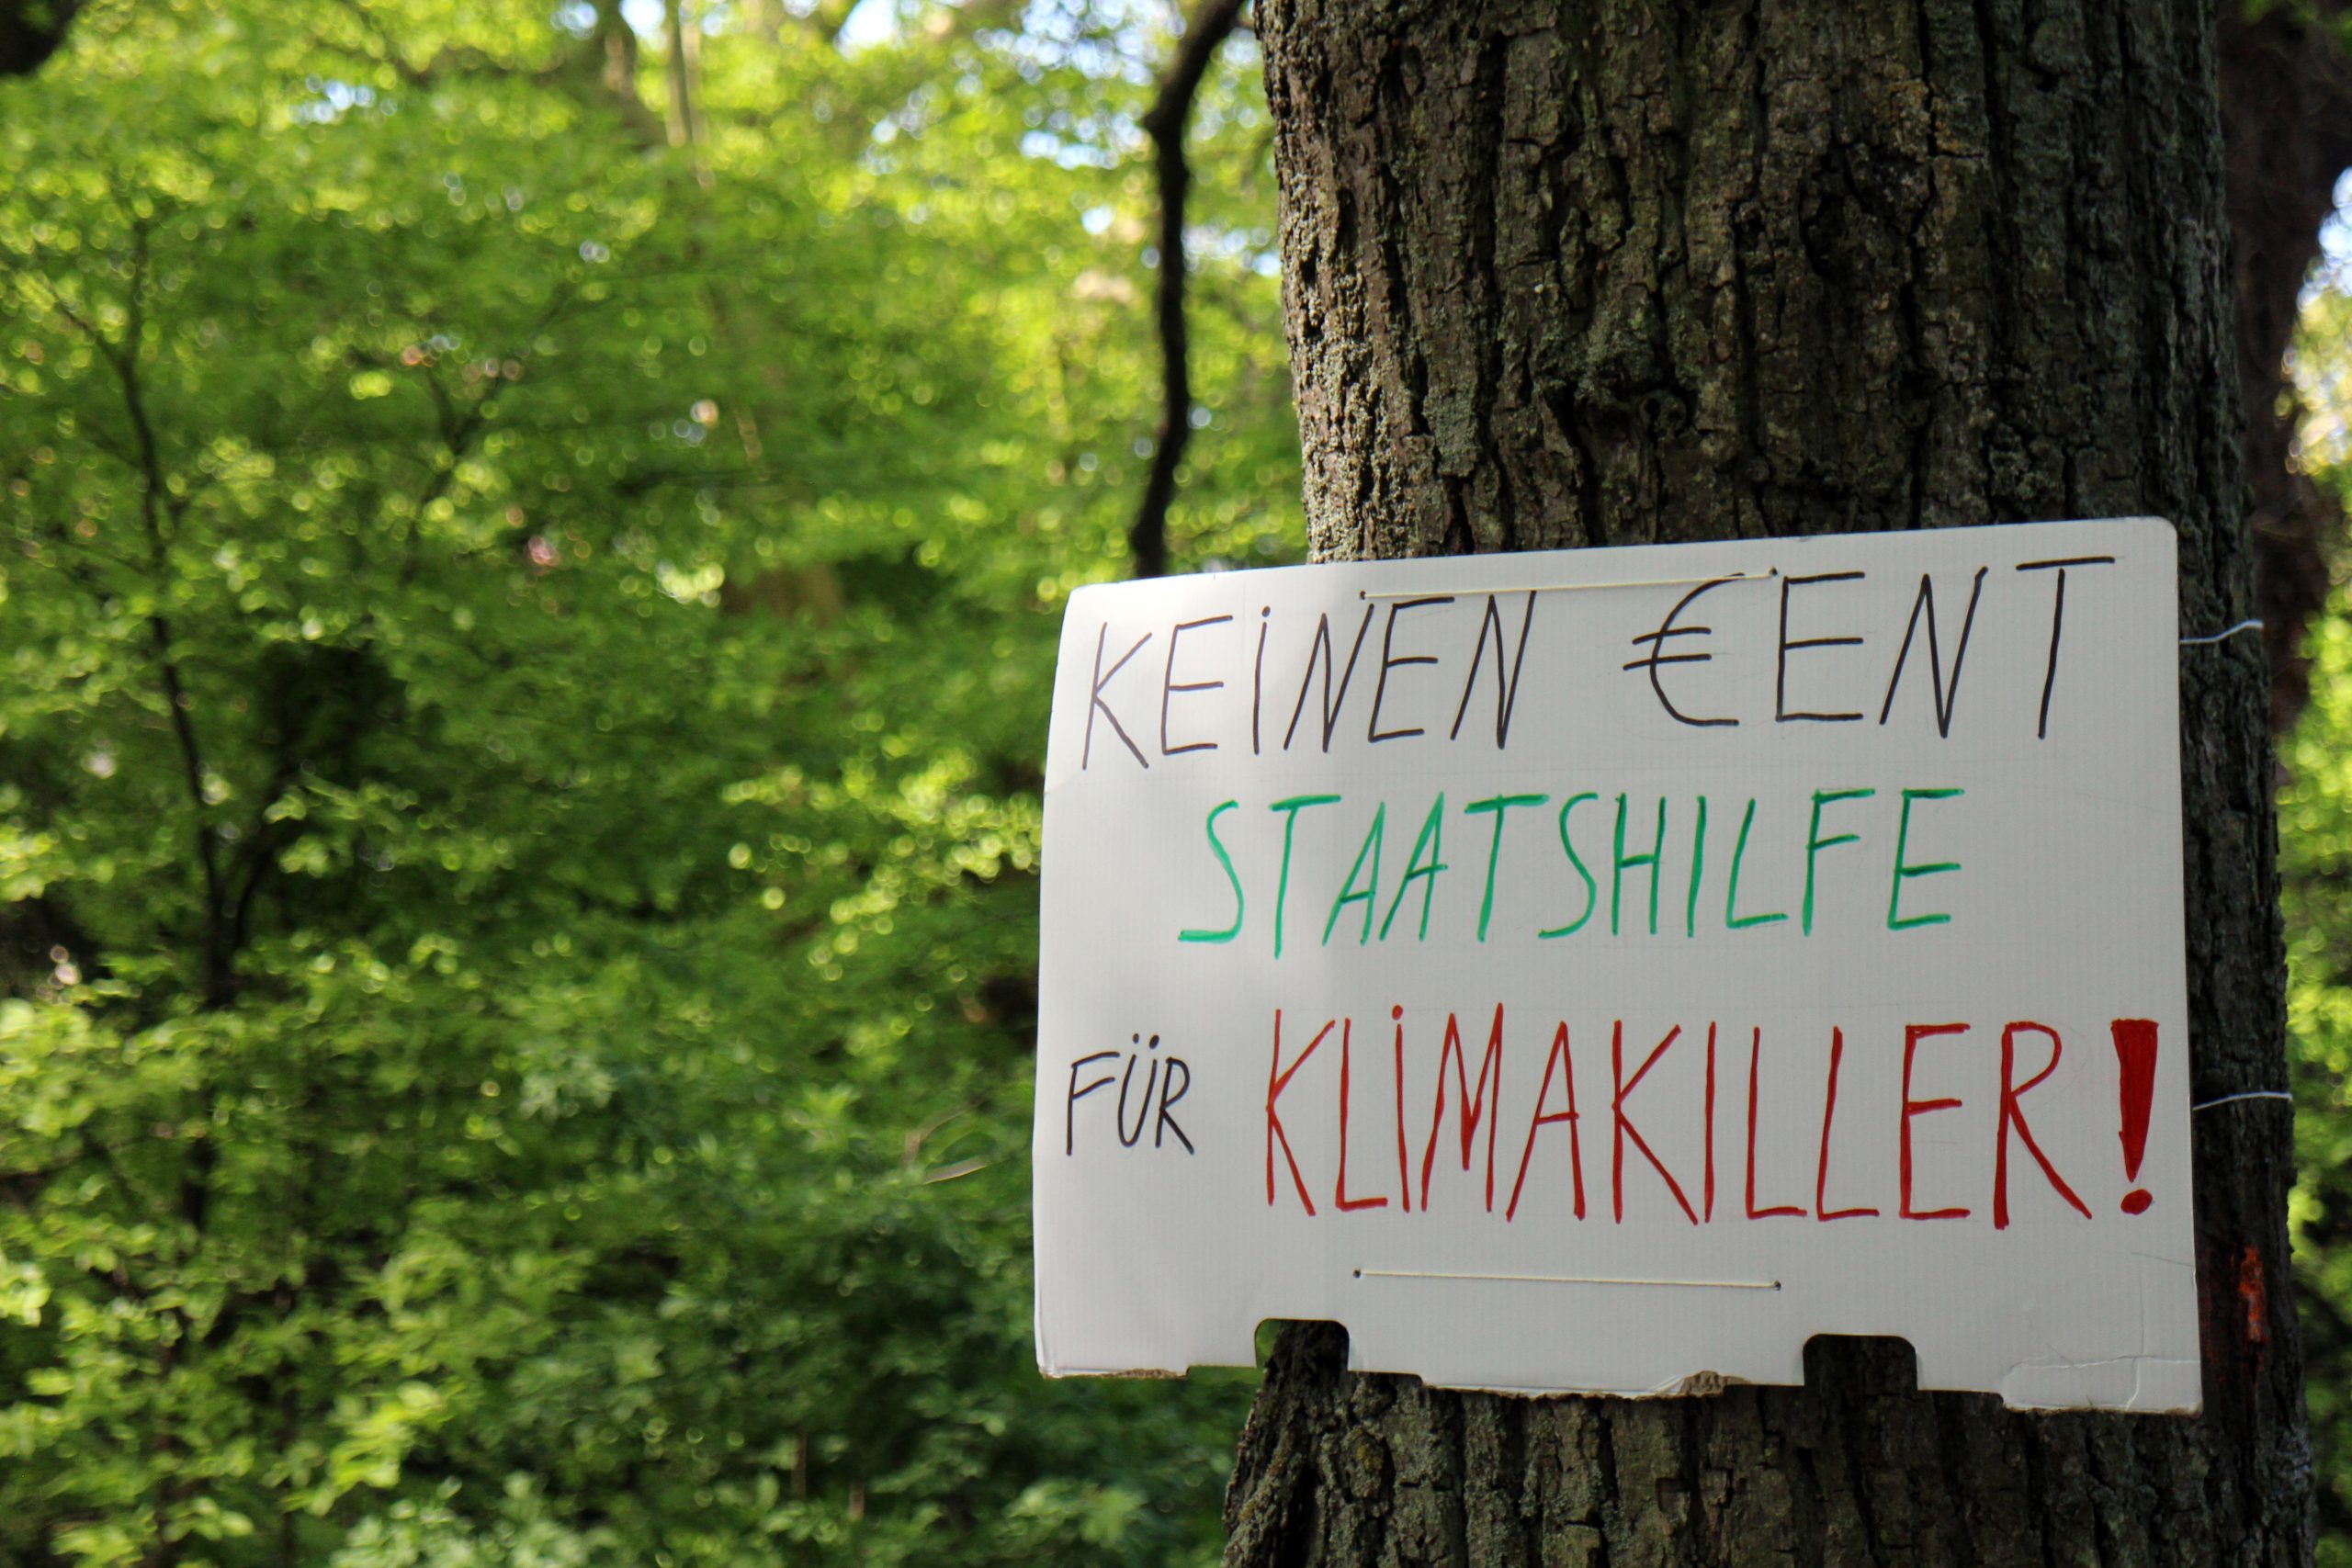 KEINEN €ENT
STAATSHILFE
FÜR KLIMAKILLER!